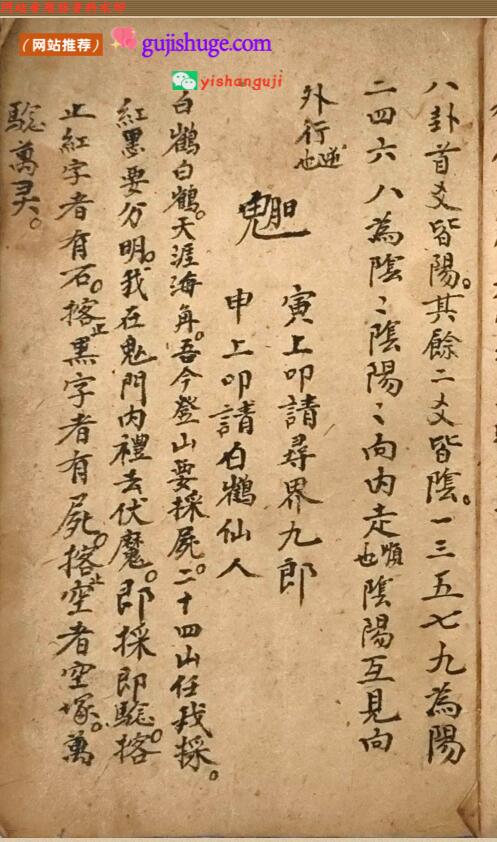 （网站推荐） gujishuge.com
yishanguji
八卦首爻皆陽。其餘二爻皆陰。一三五七九為陽
二四六八為陰〻陰陽〻向內走順也陰陽互見向
外行逆也
寅上叩請尋界九郎
申上叩請白鶴仙人
白鶴白鶴。天涯海角。吾今登山要採屍。二十四山任我採。
紅黑要分明。我在鬼門內禮去伏魔。即採即騐。撘
止紅字者有石。撘止黑字者有屍。撘止空者空塚。萬
騐萬灵。